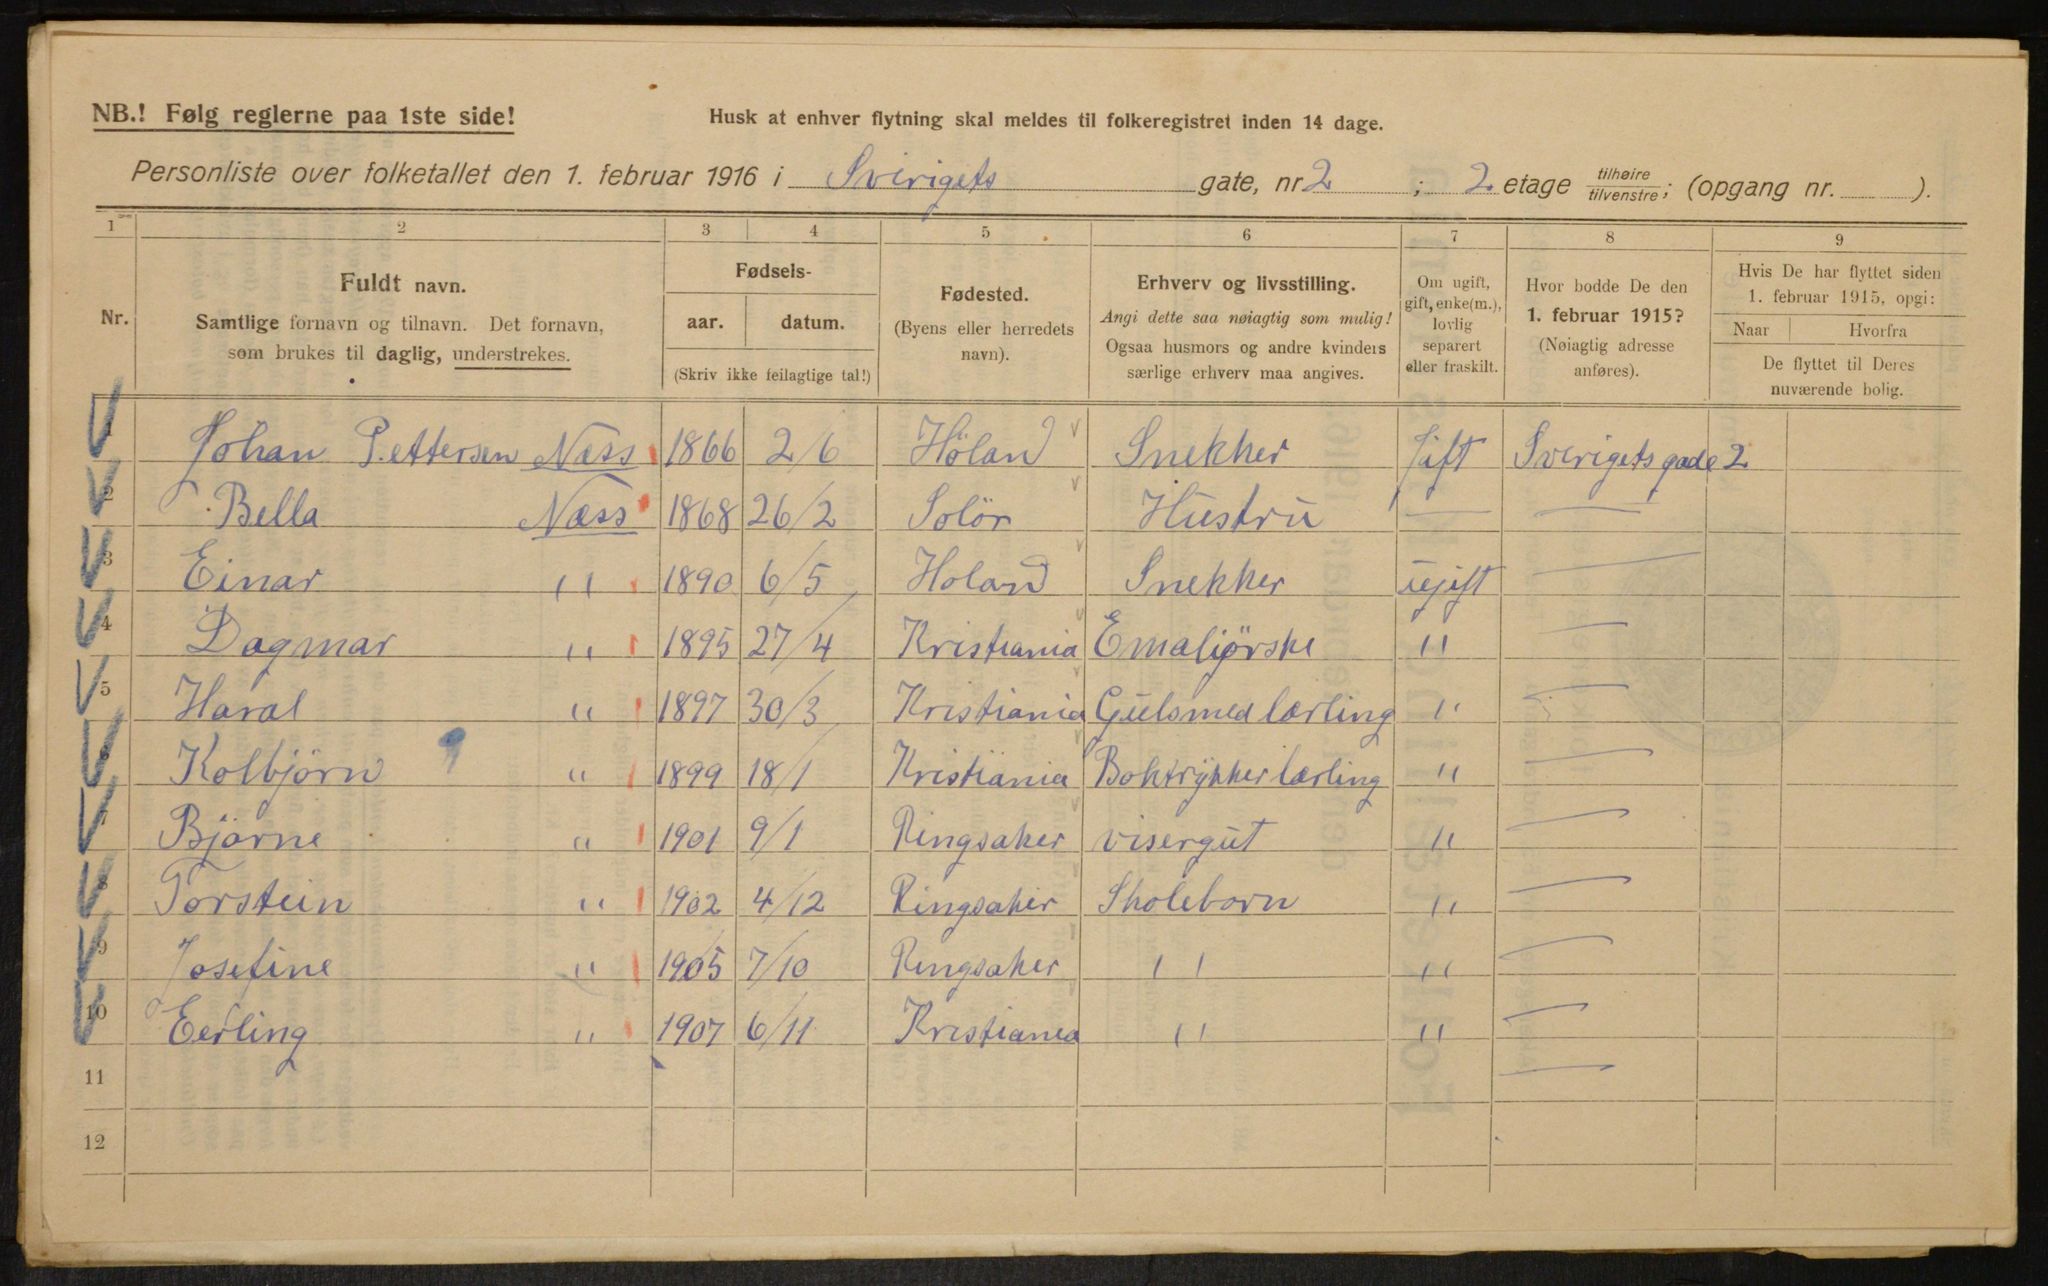 NB.! Følg reglerne paa 1ste side!
Husk at enhver flytning skal meldes til folkeregistret inden 14 dage.
Personliste over folketallet den 1. februar 1916 i Sverigets gate, nr 2 ; 2 etage tilhøire/tilvenstre; (opgang nr. ).
1 2 3 4 5 6 7 8 9
Nr.
Fuldt navn.
Samtlige fornavn og tilnavn. Det fornavn,
som brukes til daglig, understrekes.
Fødsels-
aar. datum.
(Skriv ikke feilagtige tal!)
Fødested.
(Byens eller herredets
navn).
Erhverv og livsstilling.
Angi dette saa nøiagtig som mulig!
Ogsaa husmors og andre kvinders
særlige erhverv maa angives.
Om ugift,
gift, enke(m.),
lovlig
separert
eller fraskilt.
Hvor bodde De den
1. februar 1915?
(Nøiagtig adresse
anføres).
Hvis De har flyttet siden
1. februar 1915, opgi:
Naar Hvorfra
De flyttet til Deres
nuværende bolig.
1 Johan Pettersen Næss 1866 2/6 Høland Snekker Gift Sverigetsgade 2
2 Bella Næss 1868 26/2 Solör Hustru — —
3 Einar " 1890 6/5 Holand Snekker ugift —
4 Dagmar " 1895 27/4 Kristiania Emaljörske " —
5 Haral " 1897 30/3 Kristiania Gulsmed lærling " —
6 Kolbjörn " 1899 18/1 Kristiania Boktrykker lærling " —
7 Bjarne " 1901 9/1 Ringsaker visergut " —
8 Torstein " 1902 4/12 Ringsaker Skolebarn " —
9 Josefine " 1905 7/10 Ringsaker " " —
10 Eerling " 1907 6/11 Kristiania " " —
11 —
12